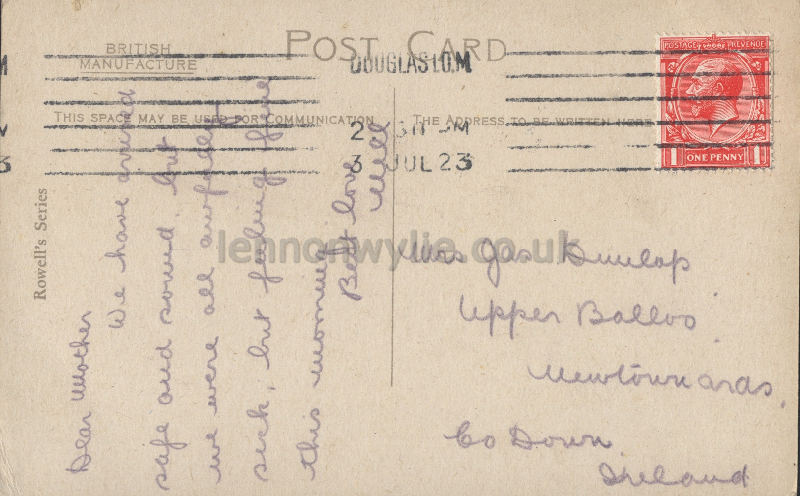 POST CARD
BRITISH
MANUFACTURE
THIS SPACE MAY BE USED FOR COMMUNICATION
THE ADDRESS TO BE WRITTEN HERE
DOUGLAS I.O.M
3 JUL 23
POSTAGE REVENUE
1 ONE PENNY 1
Rowell's Series
Dear Mother
We have arrived
safe and sound, but
we were all awfully
sick, but feeling fine
this morning
Best love
Will
Mrs Jas Dunlop
Upper Balloo
Newtownards,
Co Down
Ireland
lennonwylie.co.uk